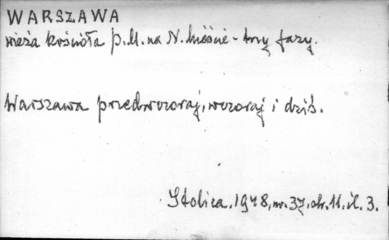 WARSZAWA
wieża kościoła p.M. na N. Mieście - trzy fazy.
Warszawa przedwczoraj, wczoraj i dziś.
Stolica, 1948, nr. 37, str. 11, il. 3.